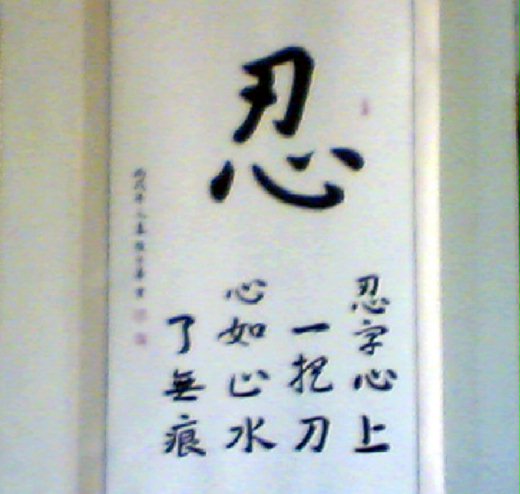 忍
忍字心上
一把刀
心如止水
了無痕